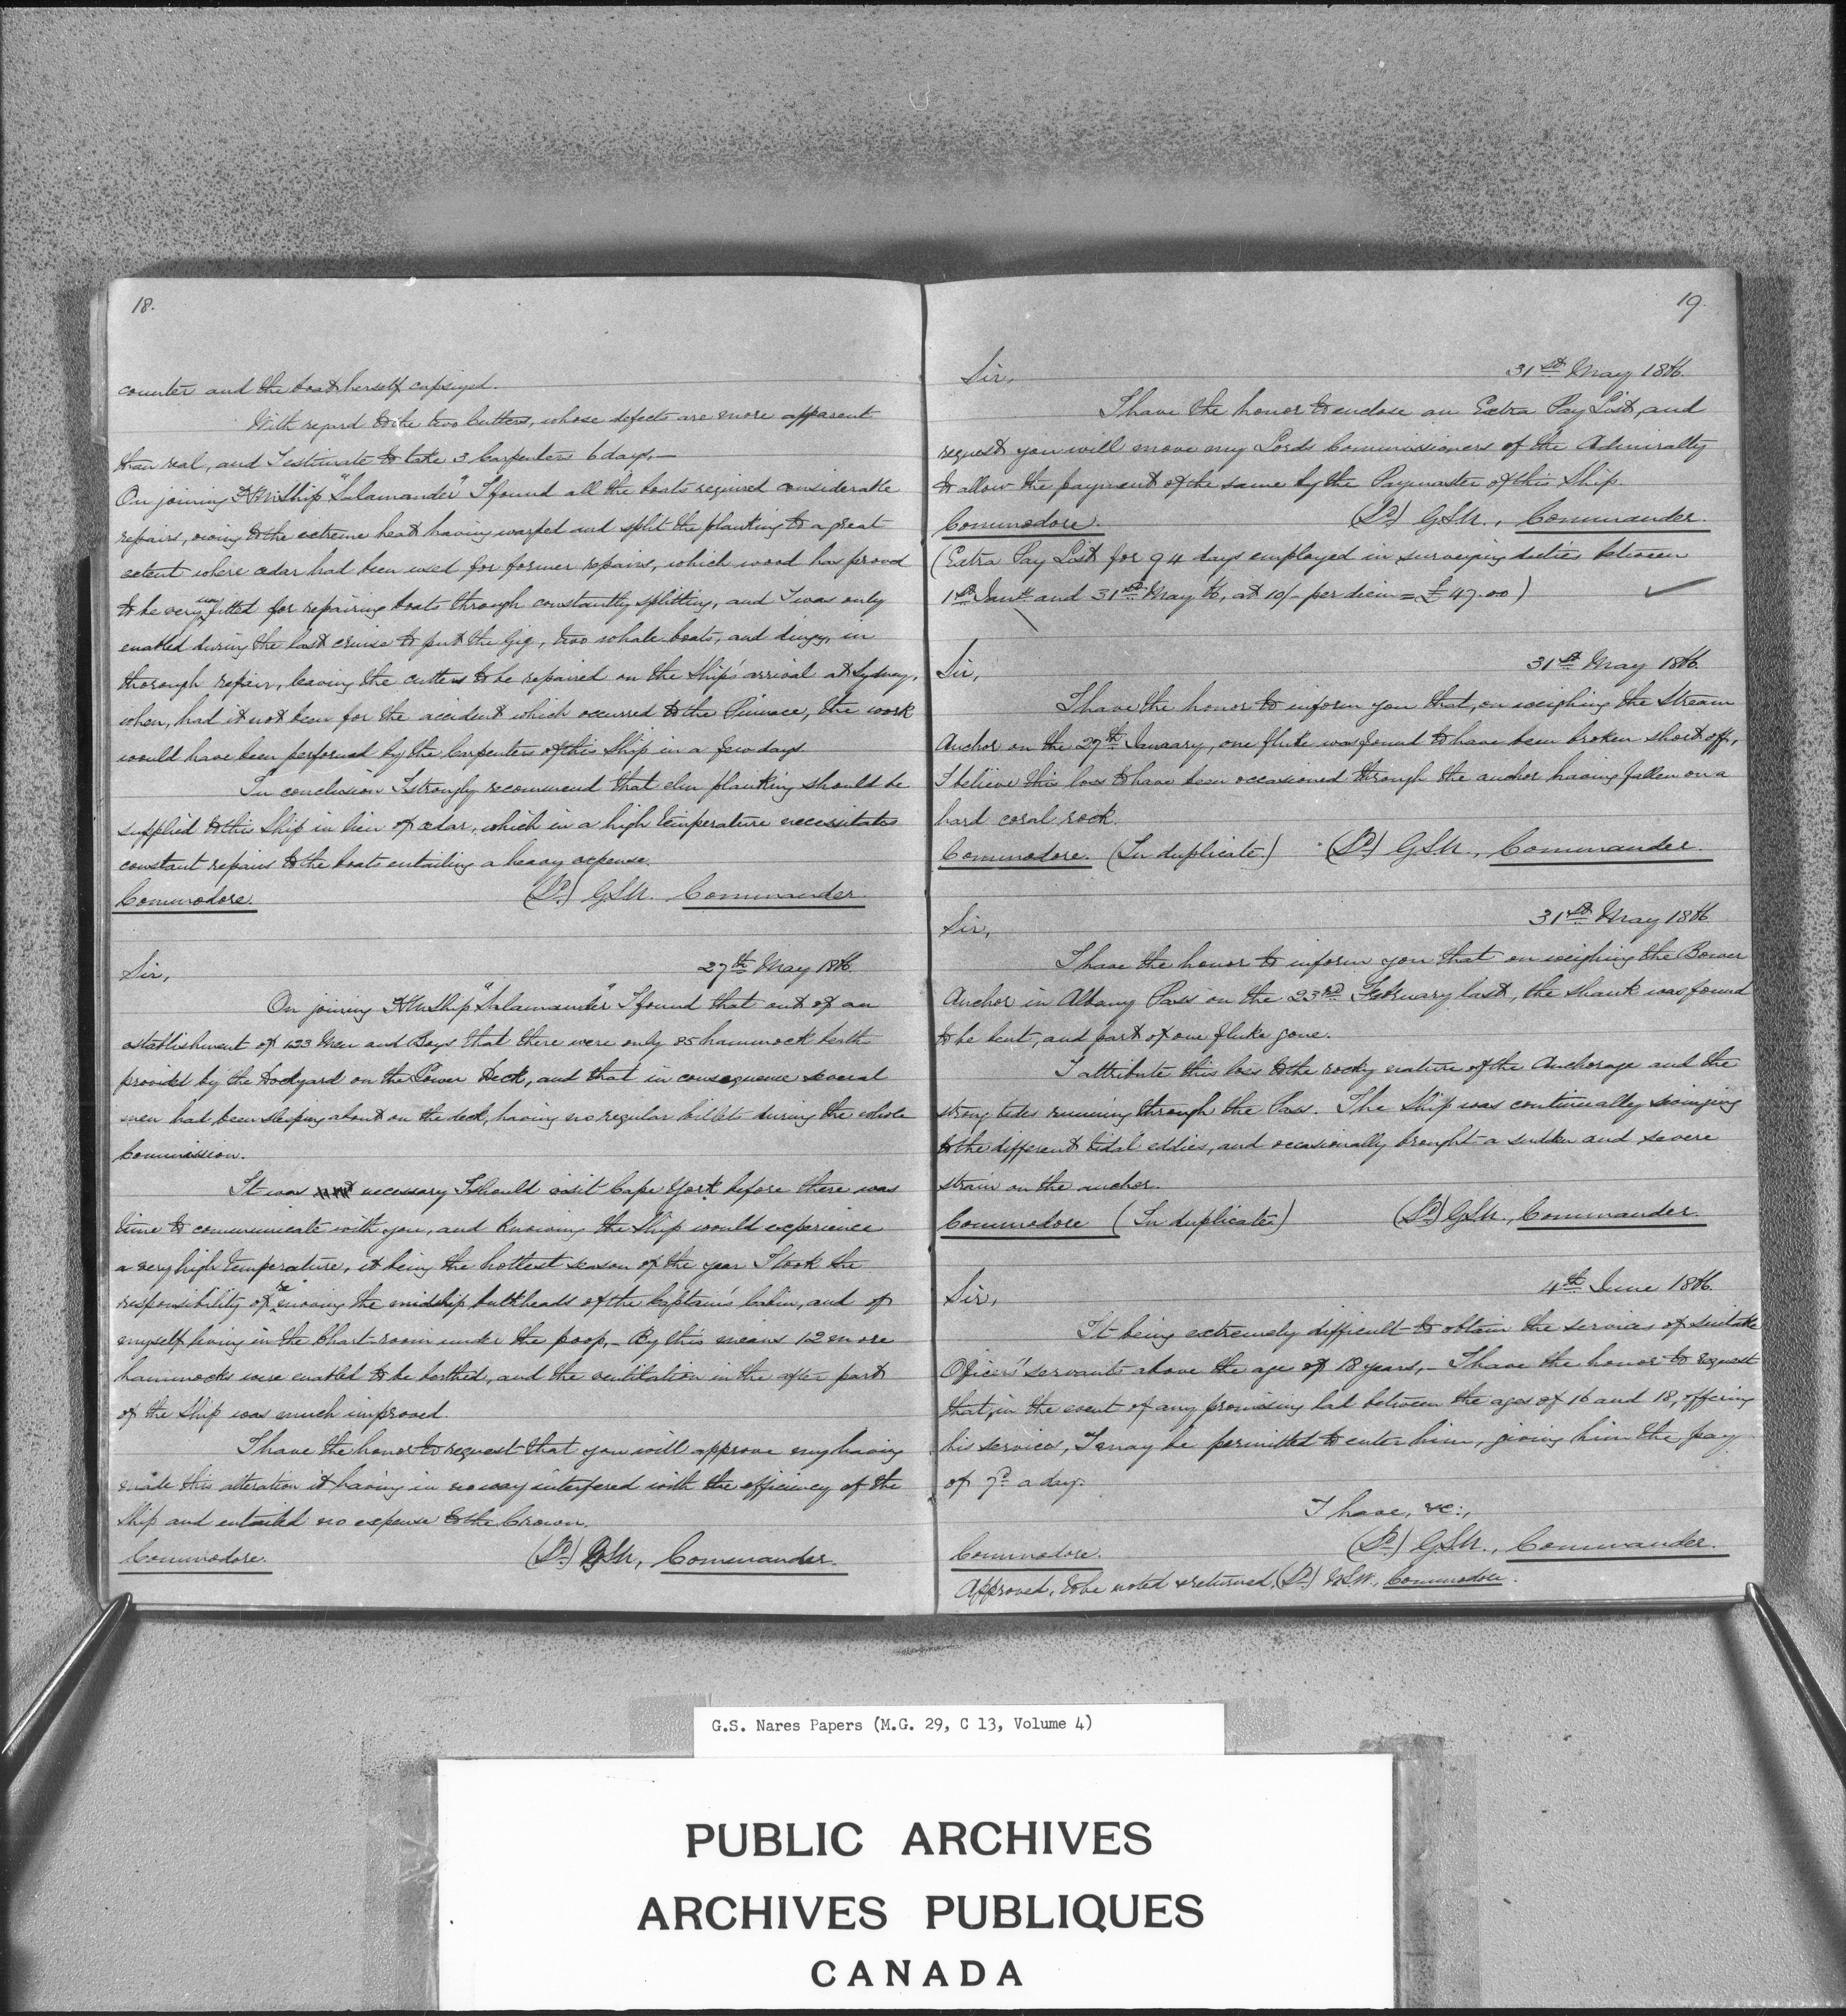 18.
counter and the boat herself capsized.
With regard to the two Cutters, whose defects are more apparent
than real, and I estimate to take 3 Carpenters 6 days,—
On joining H.M. Ship "Salamander" I found all the boats required considerable
repairs, owing to the extreme heat having warped and split the planking to a great
extent where cedar had been used for former repairs, which wood has proved
to be very unfitted for repairing boats through constantly splitting, and I was only
enabled during the last cruise to put the Gig, two whale-boats, and dingy, in
thorough repair, leaving the cutters to be repaired on the Ship's arrival at Sydney,
when, had it not been for the accident which occurred to the Pinnace, the work
would have been performed by the Carpenters of this Ship in a few days
In conclusion I strongly recommend that elm planking should be
supplied to this Ship in lieu of cedar, which in a high temperature necessitates
constant repairs to the boats entailing a heavy expense.
Commodore. (Sd.) G.S.N. Commander
Sir, 27th May 1866.
On joining H.M. Ship "Salamander" I found that out of an
establishment of 123 Men and Boys that there were only 85 hammock berths
provided by the Dockyard on the Lower Deck, and that in consequence several
men had been sleeping about on the deck, having no regular billets during the whole
Commission.
It was necessary I should visit Cape York before there was
time to communicate with you, and knowing the Ship would experience
a very high temperature, it being the hottest season of the year I took the
responsibility of removing the midship bulkheads of the Captain's Cabin, and of
myself living in the Chart-room under the poop,— By this means 12 more
hammocks were enabled to be berthed, and the ventilation in the after part
of the Ship was much improved.
I have the honor to request that you will approve my having
made this alteration it having in no way interfered with the efficiency of the
Ship and entailed no expense to the Crown.
Commodore. (Sd.) G.S.N., Commander.
19.
Sir, 31st May 1866.
I have the honor to enclose an Extra Pay List, and
request you will move my Lords Commissioners of the Admiralty
to allow the payment of the same by the Paymaster of this Ship.
Commodore. (Sd.) G.S.N., Commander.
(Extra Pay List for 94 days employed in surveying duties between
1st Jany and 31st May 66, at 10/- per diem = £47.00)
Sir, 31st May 1866.
I have the honor to inform you that, on weighing the Stream
Anchor on the 27th January, one fluke was found to have been broken short off,
I believe this loss to have been occasioned through the anchor having fallen on a
hard coral rock.
Commodore. (In duplicate) (Sd.) G.S.N., Commander.
Sir, 31st May 1866
I have the honor to inform you that on weighing the Bower
Anchor in Albany Pass on the 23rd February last, the shank was found
to be bent, and part of one fluke gone.
I attribute this loss to the rocky nature of the Anchorage and the
strong tides running through the Pass. The Ship was continually swinging
to the different tidal eddies, and occasionally brought a sudden and severe
strain on the anchor.
Commodore (In duplicate) (Sd.) G.S.N., Commander.
Sir, 4th June 1866.
It being extremely difficult to obtain the services of suitable
Officers' servants above the age of 18 years,— I have the honor to request
that, in the event of any promising lad between the ages of 16 and 18, offering
his services, I may be permitted to enter him, giving him the pay
of 7d. a day.
I have, &c:,
(Sd.) G.S.N., Commander.
Commodore.
Approved, to be noted & returned, (Sd.) W.S.W., Commodore.
G.S. Nares Papers (M.G. 29, C 13, Volume 4)
PUBLIC ARCHIVES
ARCHIVES PUBLIQUES
CANADA